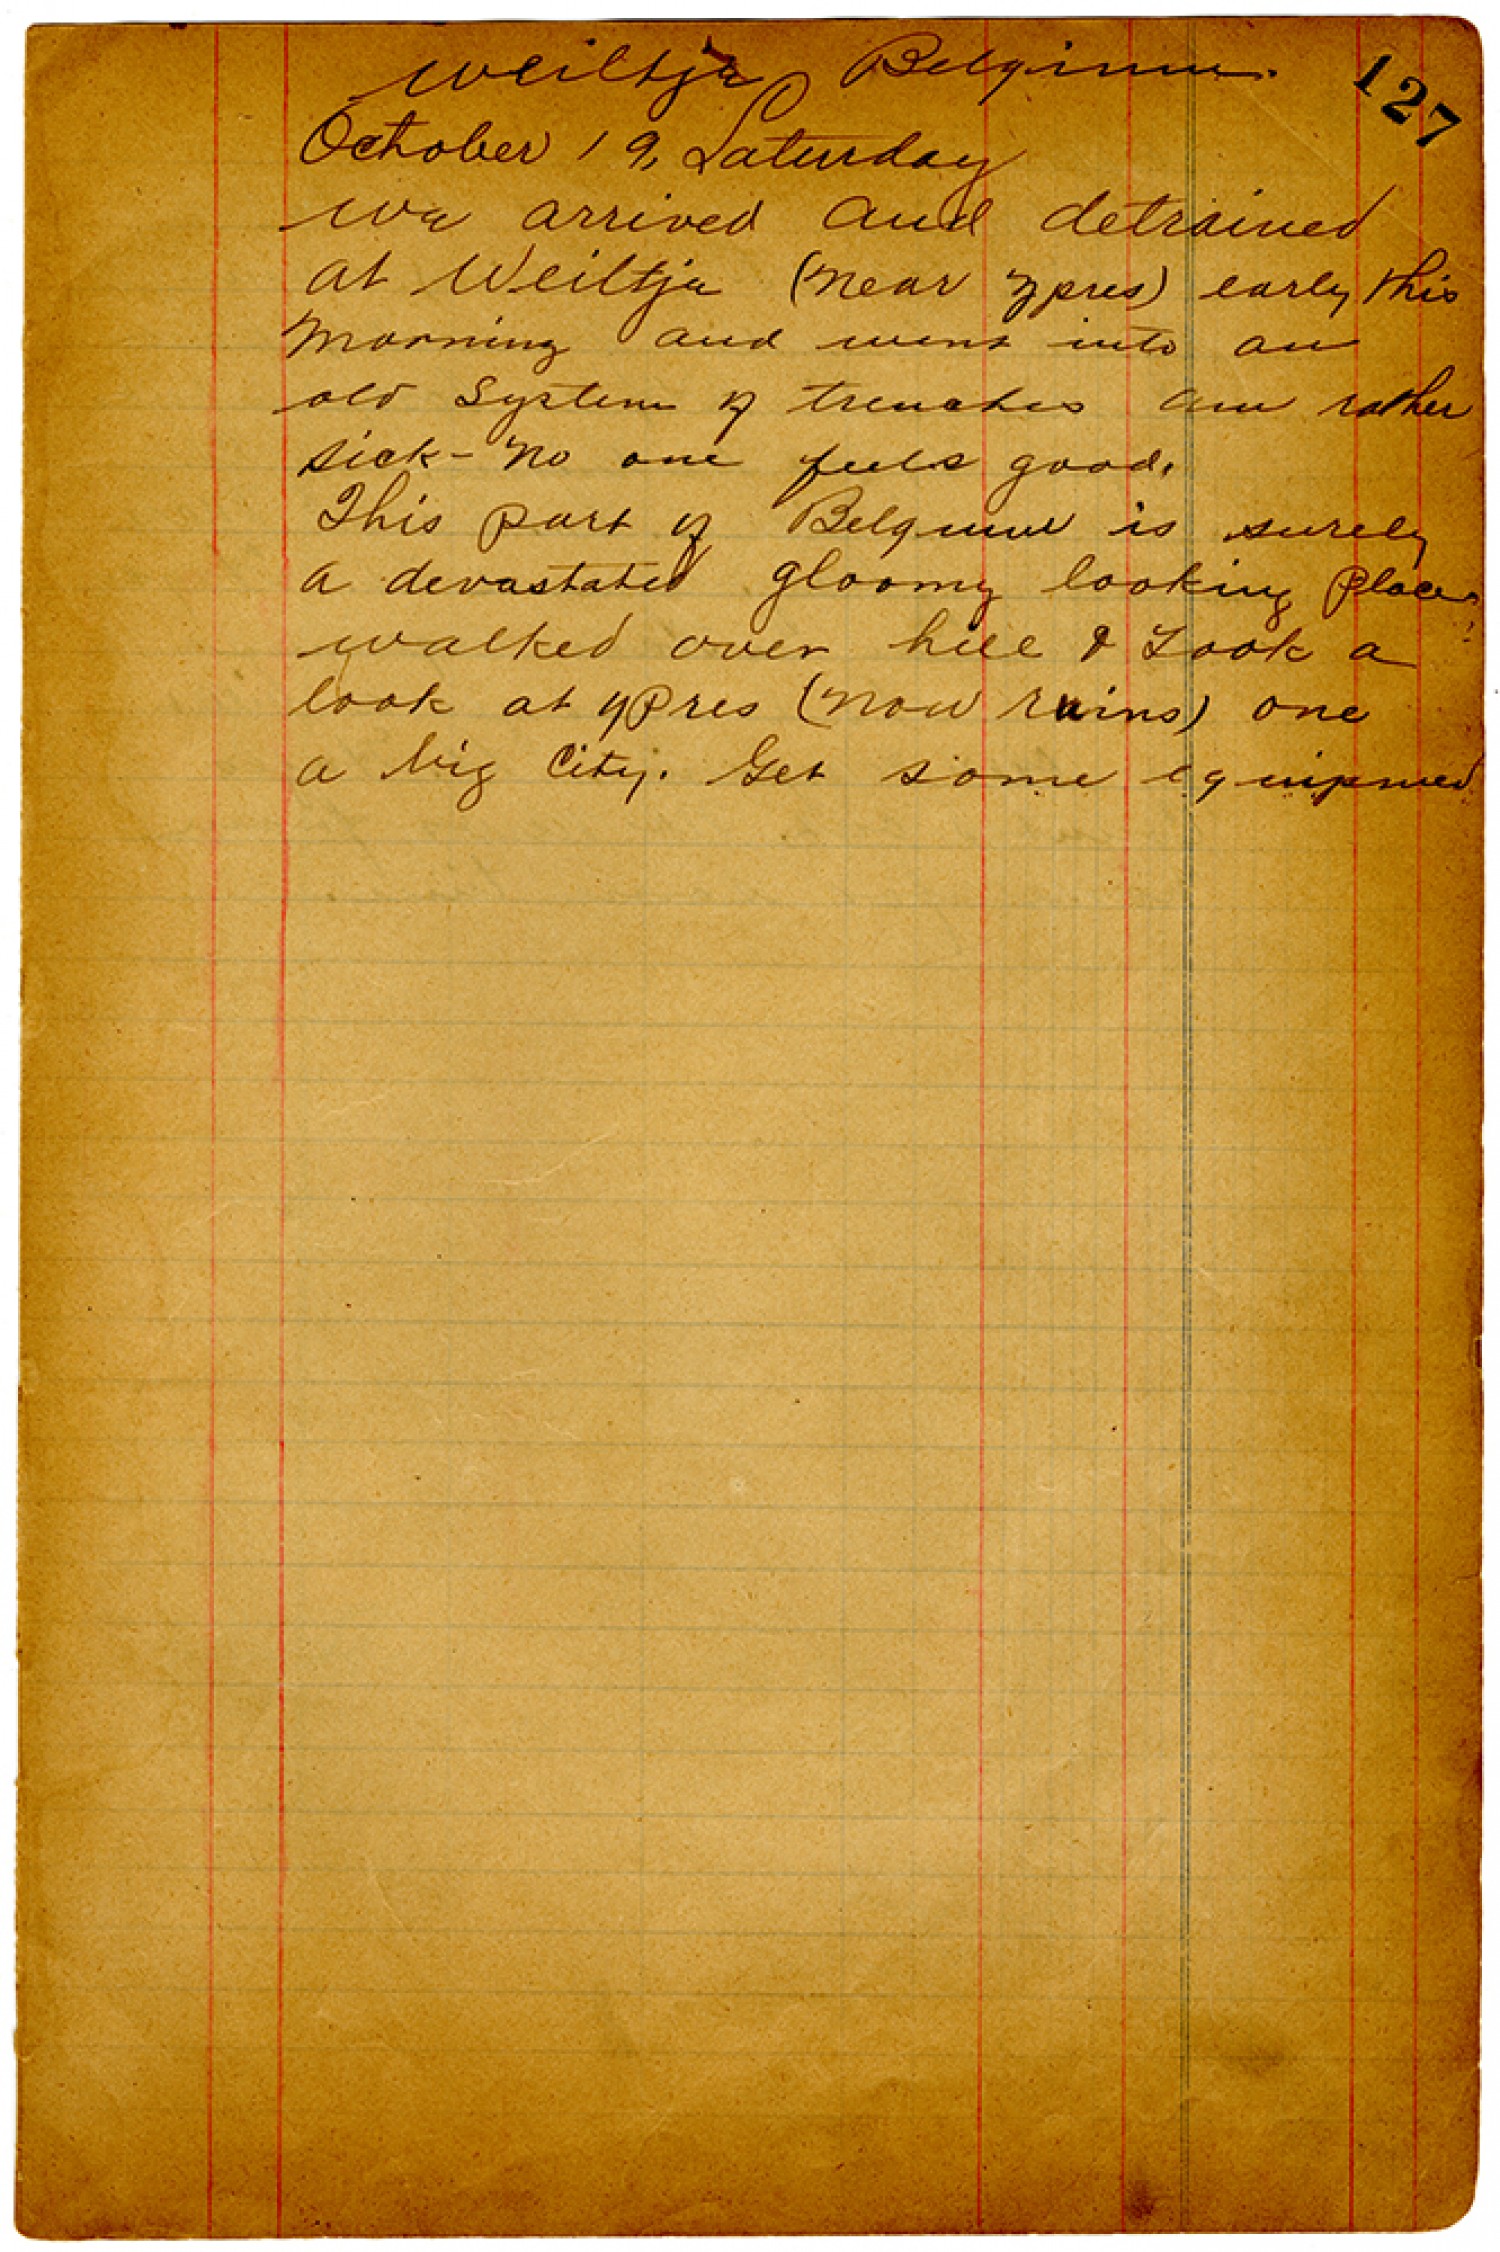 Weiltja Belginum.
127
October 19, Saturday
We arrived and detrained
at Weiltja (near Ypres) early this
morning and went into an
old system of trenches am rather
sick - No one feels good.
This part of Belguim is surely
a devastated gloomy looking place.
walked over hill & Took a
look at ypres (now ruins) one
a big City. Get some equipmed